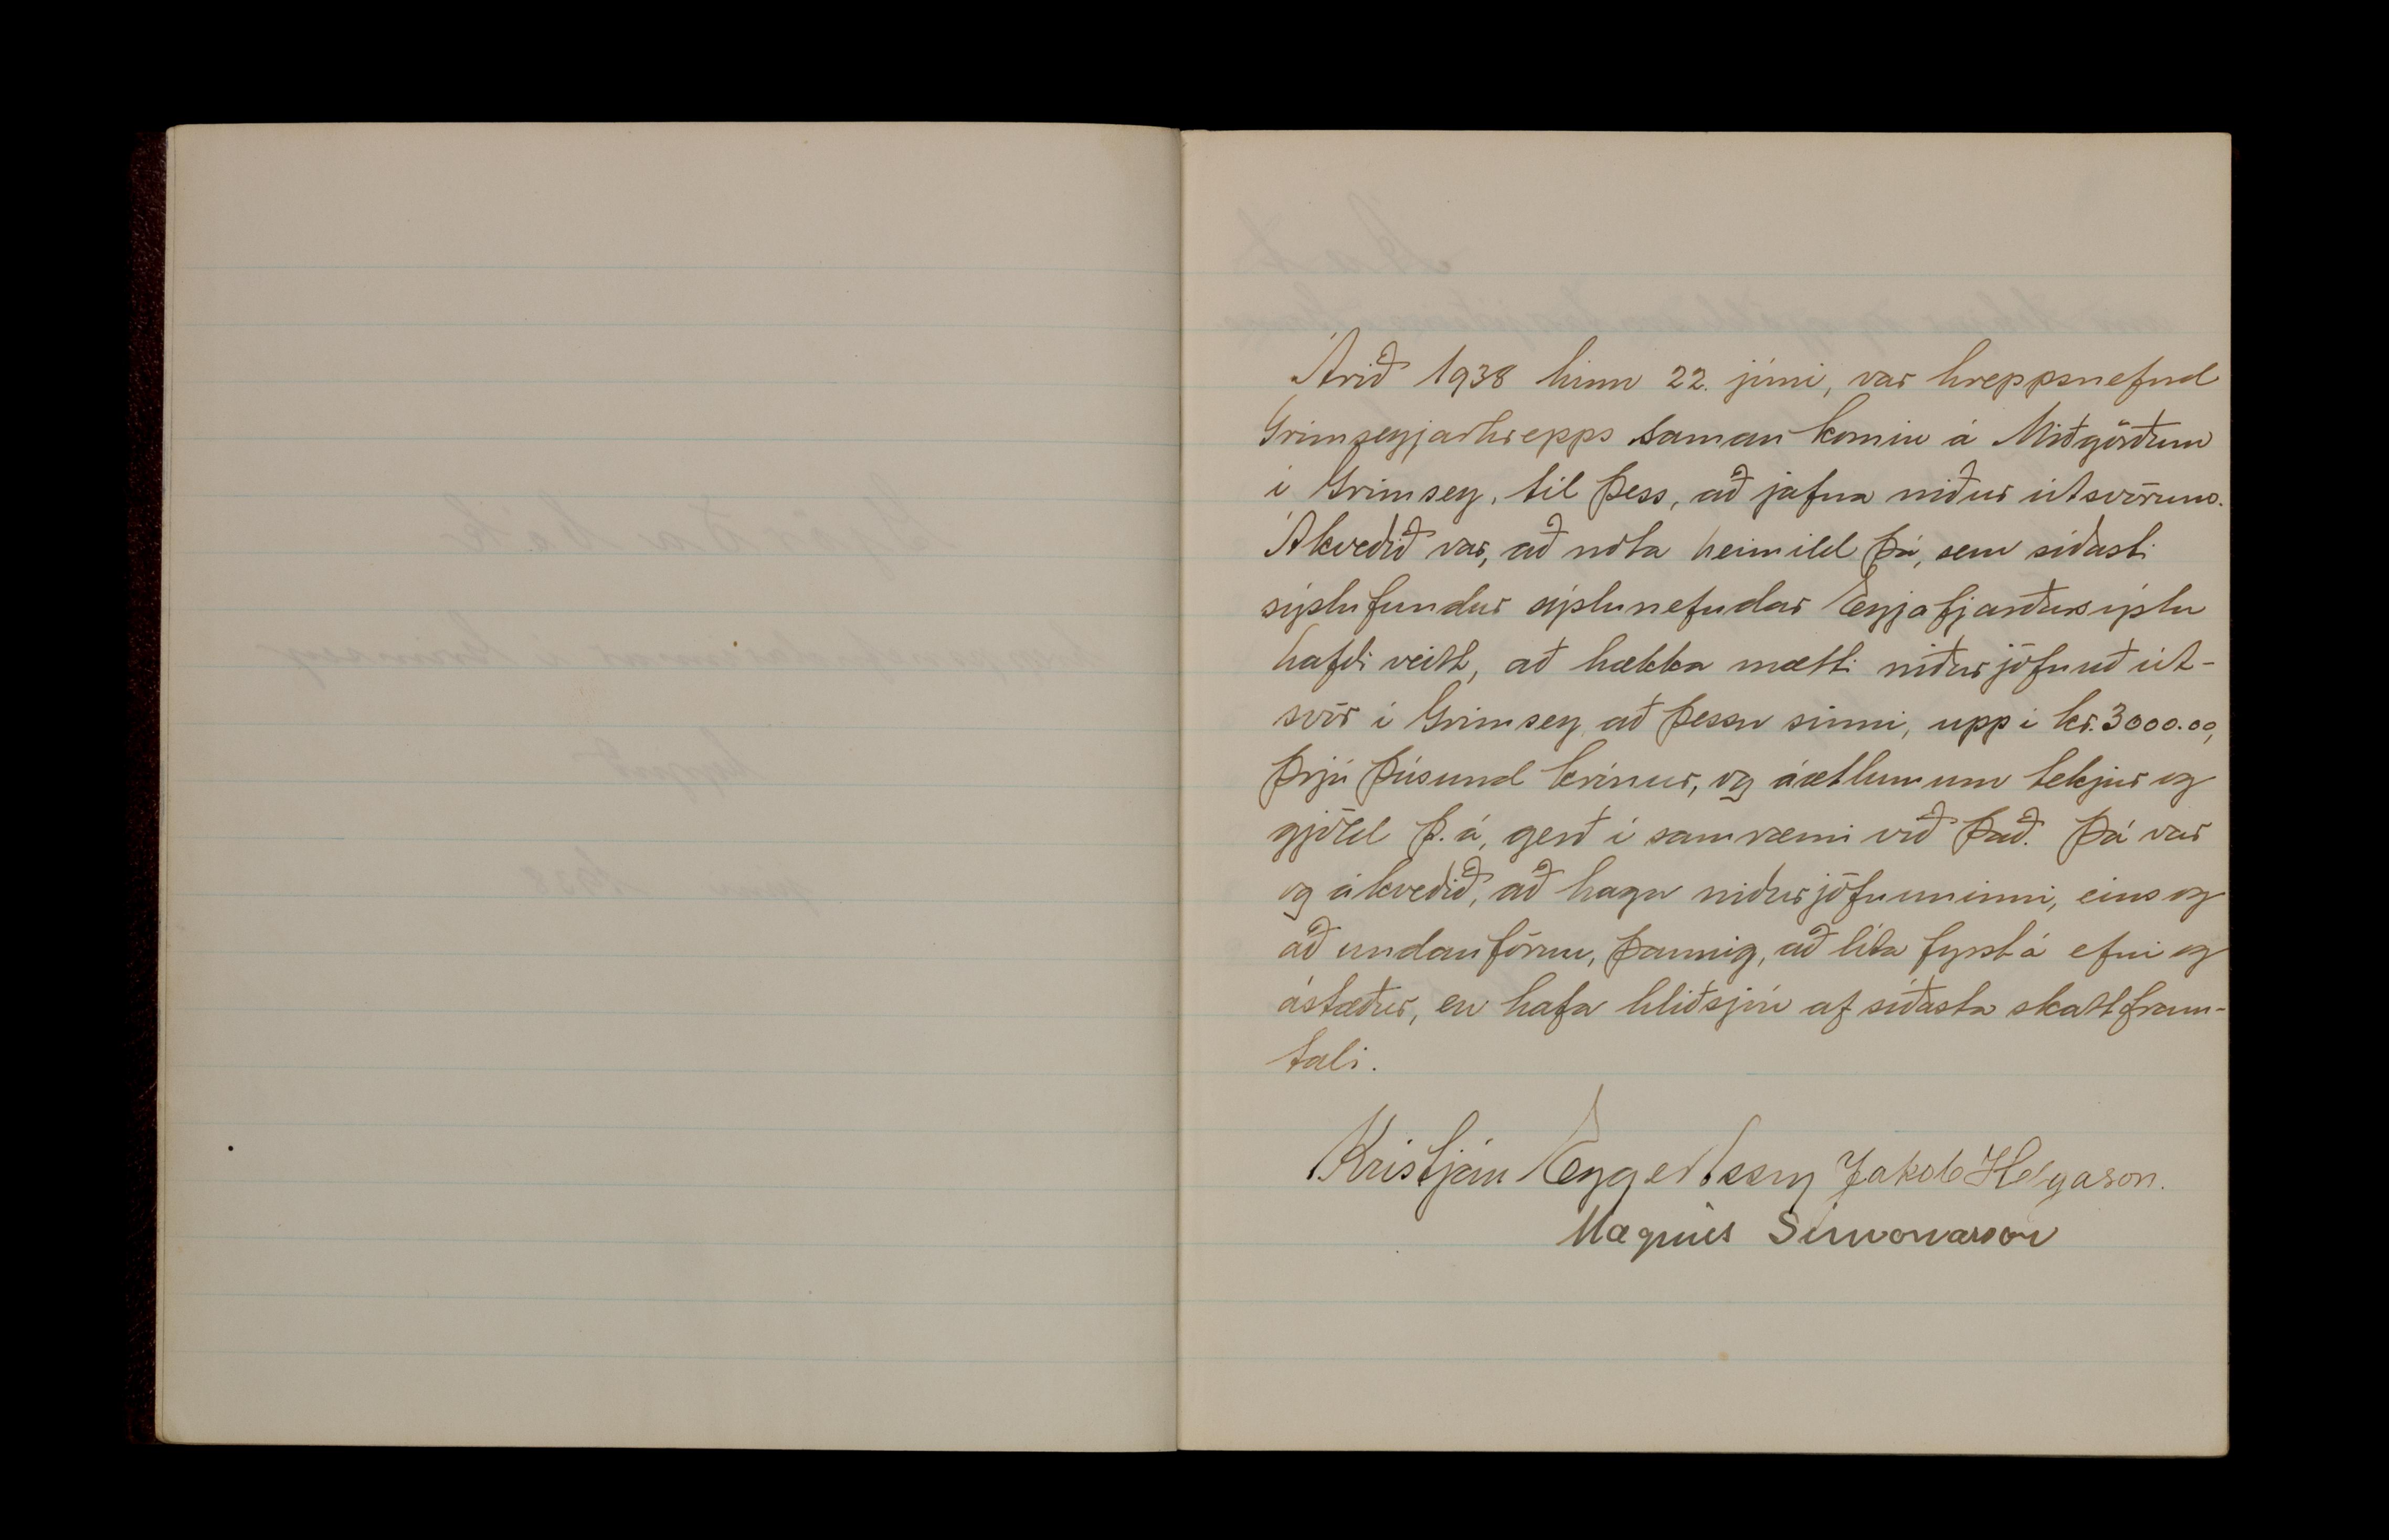 Árið 1938 hinn 22. júní, var hreppsnefnd
Grímseyjarhrepps saman komin á Miðgörðum
í Grímsey, til þess, að jafna niður útsvörum.
Ákveðið var, að nota heimild þá, sem síðasti
sýslufundur sýslunefndar Eyjafjarðarsýslu
hafði veitt, að hækka mætti niðurjöfnuð út-
svör í Grímsey að þessu sinni, upp í kr. 3000.00,
þrjú þúsund krónur, og áætlun um tekjur og
gjöld þ. á, gerð í samræmi við það. Þá var
og ákveðið, að haga niðurjöfnuninni, eins og
að undanförnu, þannig, að líta fyrst á efni og
ástæður, en hafa hliðsjón af síðasta skattfram-
tali.
Kristján Eggertsson Jakob Helgason.
Magnús Símonarson